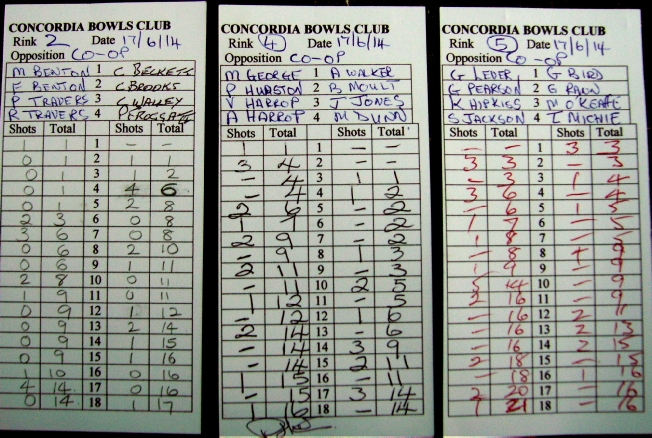 CONCORDIA BOWLS CLUB
Rink 2 Date 17/6/14
Opposition CO-OP
M BENTON 1 C BECKETS
E BENTON 2 C BROOKS
P TRAVERS 3 G WALLEY
R TRAVERS 4 P FROGGATT
Shots Total Shots Total
1 1 1 – –
0 1 2 1 1
0 1 3 1 2
0 1 4 4 6
0 1 5 2 8
2 3 6 0 8
3 6 7 0 8
0 6 8 2 10
0 6 9 1 11
2 8 10 0 11
1 9 11 0 11
0 9 12 1 12
0 9 13 2 14
0 9 14 1 15
0 9 15 1 16
1 10 16 0 16
4 14 17 0 16
0 14 18 1 17
CONCORDIA BOWLS CLUB
Rink 4 Date 17/6/14
Opposition CO-OP
M GEORGE 1 A WALKER
P HUASTON 2 B MOULT
V HARROP 3 J JONES
A HARROP 4 M DUNN
Shots Total Shots Total
1 1 1 – –
3 4 2 – –
– 4 3 1 1
– 4 4 1 2
2 6 5 – 2
1 7 6 – 2
2 9 7 – 2
– 9 8 1 3
2 11 9 – 3
– 11 10 2 5
1 12 11 – 5
– 12 12 1 6
2 14 13 – 6
– 14 14 3 9
– 14 15 2 11
1 15 16 – 11
– 15 17 3 14
1 16 18 – 14
CONCORDIA BOWLS CLUB
Rink 5 Date 17/6/14
Opposition CO-OP
G LEDER 1 G BIRD
G PEARSON 2 G
K HIPKISS 3 M O'KEAFE
S JACKSON 4 I MICHIE
Shots Total Shots Total
1 3 3
3 3 2 – 3
– 3 3 1 4
3 6 4 – 4
– 6 5 1 5
1 7 6 – 5
1 8 7 –
– 8
1 9 9 – 9
5 14 10 – 9
2 16 11 – 9
– 16 12 2 11
– 16 13 2 13
– 16 14 2 15
2 18 15 – 15
– 18 16 1 16
2 20 17 – 16
1 21 18 – 16